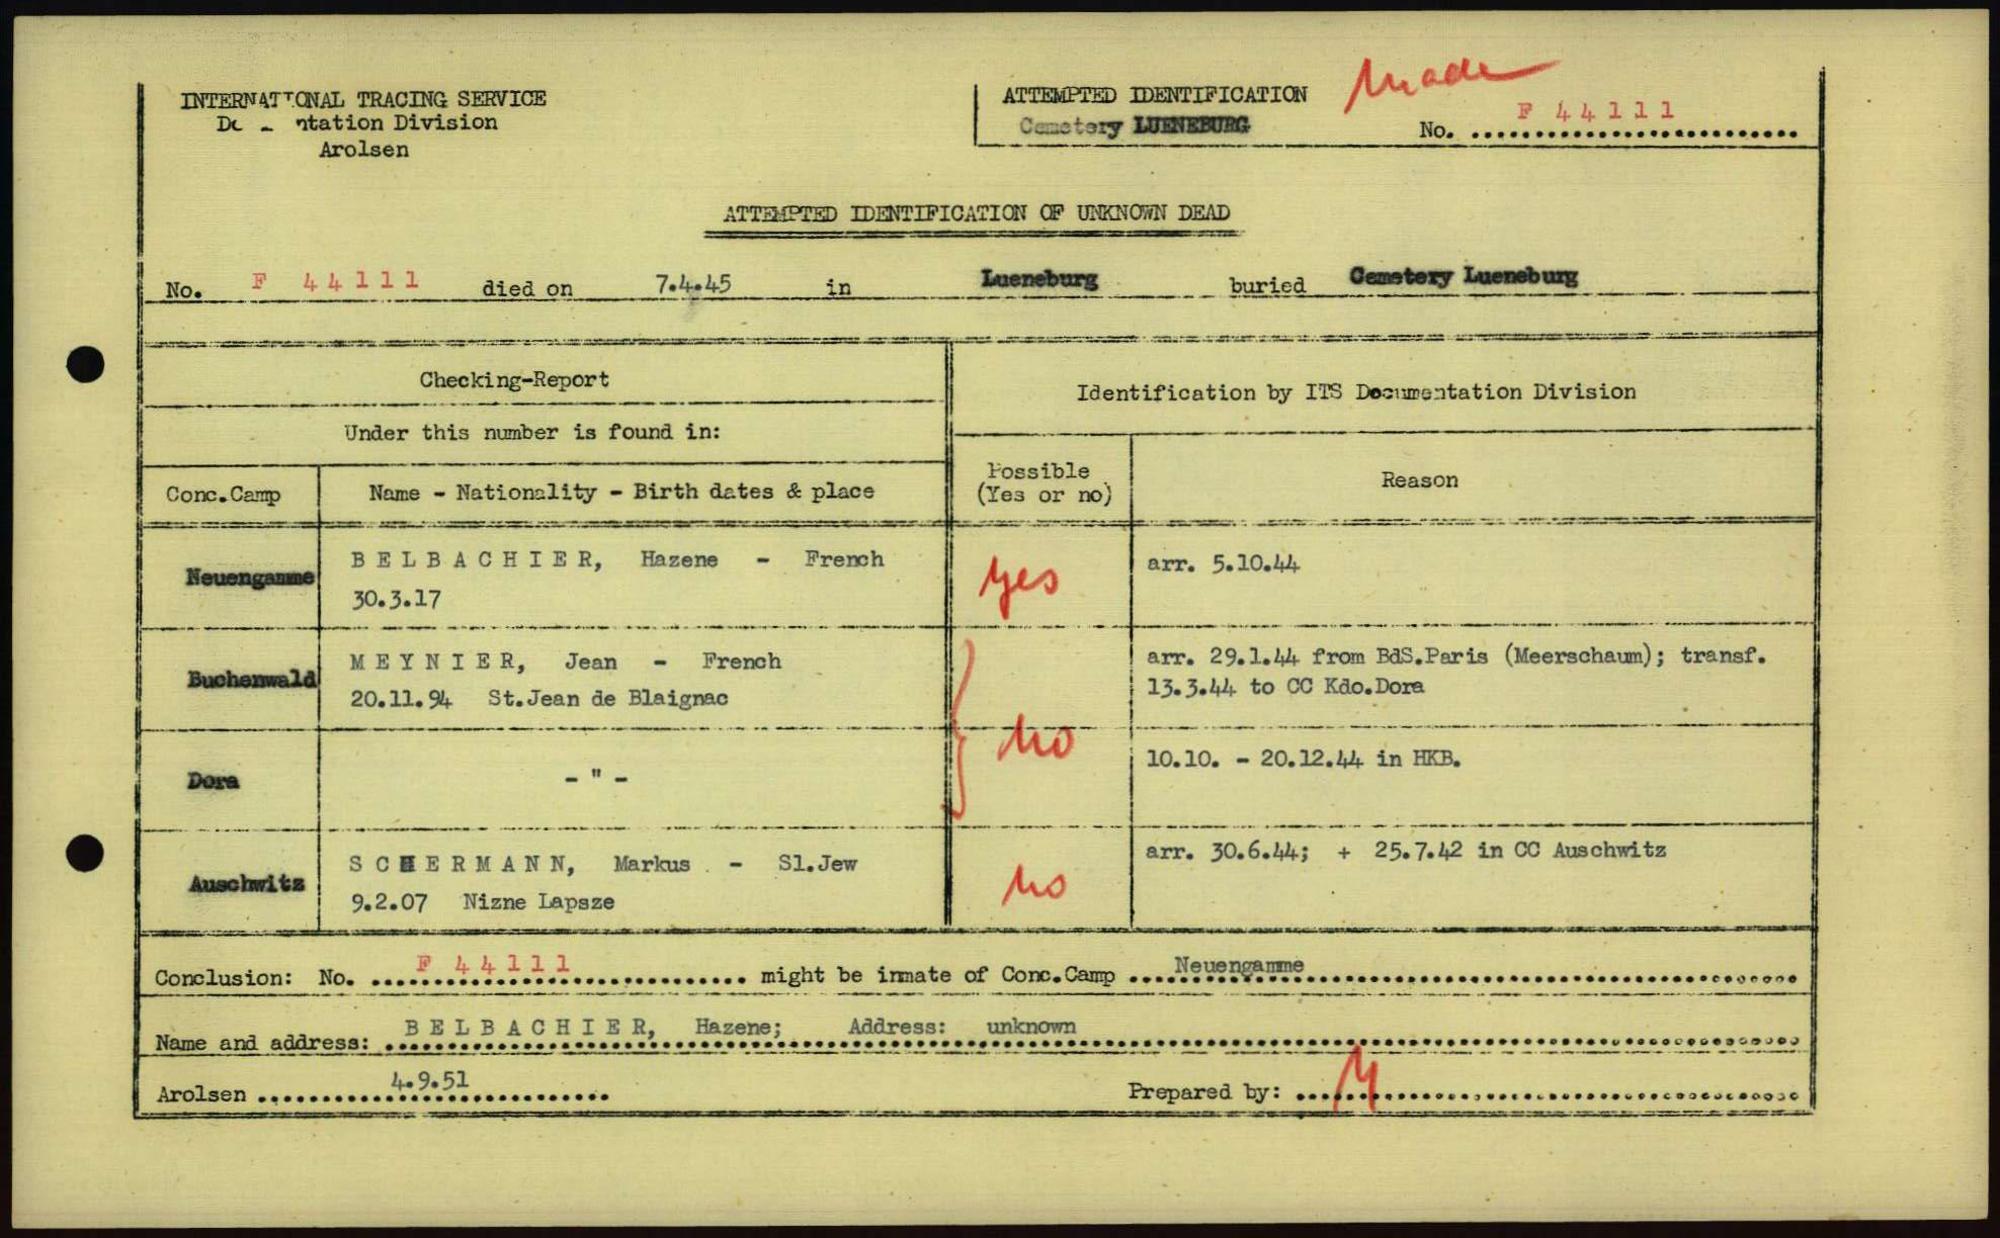 INTERNATIONAL TRACING SERVICE
Division
Arolsen
ATTEMPTED IDENTIFICATION
Made
Cemetery LUENEBURG
No. F 44111
ATTEMPTED IDENTIFICATION OF UNKNOWN DEAD
No. F 44111 died on 7.4.45 in Lueneburg buried Cemetery Lueneburg
Checking-Report
Identification by ITS Documentation Division
Under this number is found in:
Conc.Camp
Name - Nationality - Birth dates & place
Possible
(Yes or no)
Reason
Neuengamme
BELBACHIER, Hazene - French
30.3.17
yes
arr. 5.10.44
Buchenwald
MEYNIER, Jean - French
20.11.94 St.Jean de Blaignac
arr. 29.1.44 from BdS.Paris (Meerschaum); transf.
13.3.44 to CC Kdo.Dora
no
Dora
- " -
10.10. - 20.12.44 in HKB.
Auschwitz
SCHERMANN, Markus - Sl.Jew
9.2.07 Nizne Lapsze
no
arr. 30.6.44; + 25.7.42 in CC Auschwitz
Conclusion: No. F 44111 might be inmate of Conc.Camp Neuengamme
Name and address: BELBACHIER, Hazene; Address: unknown
Arolsen 4.9.51
Prepared by: